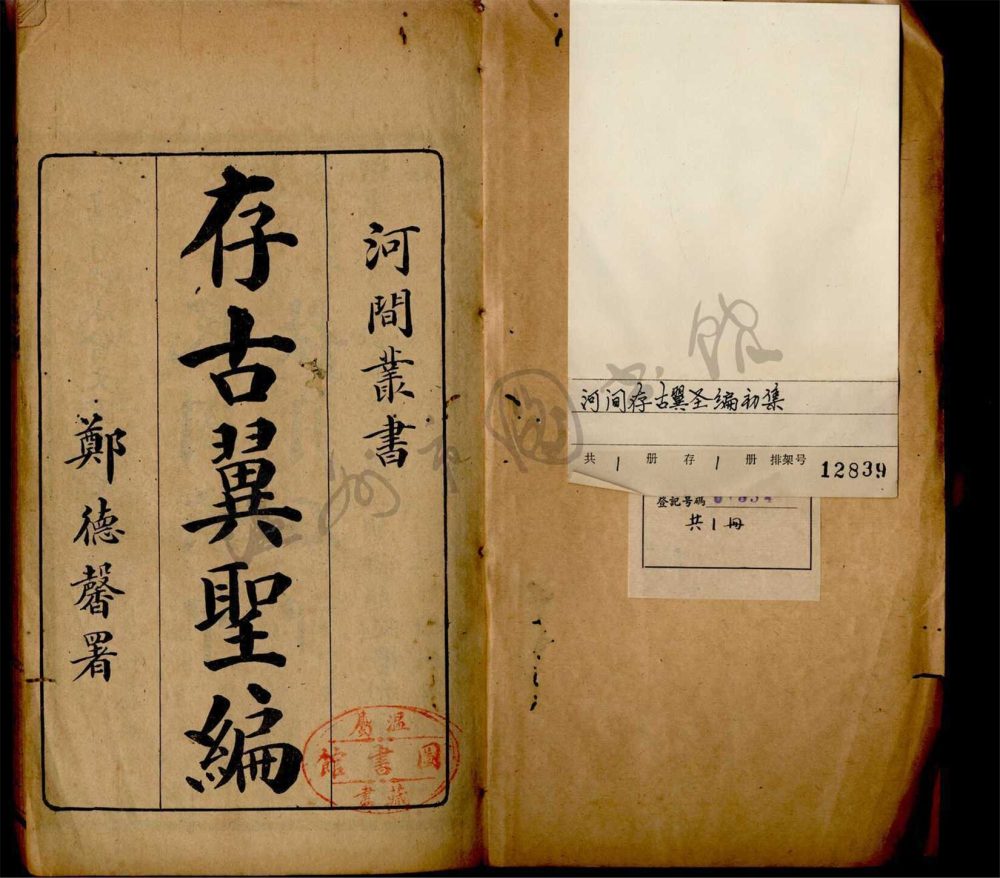 河間叢書
存古翼聖編
鄭德馨署
圖書館
藏書
河间存古翼圣编初集
共 1 册 存 1 册 排架号 12839
登記号碼
共1冊